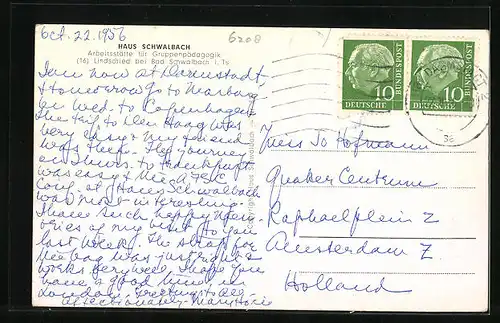 Oct. 22. 1956
6208
HAUS SCHWALBACH
Arbeitsstätte für Gruppenpädagogik
(16) Lindschied bei Bad Schwalbach i. Ts
I am now at Darmstadt
& tomorrow go to Marburg
on Wed. to Copenhagen.
The trip to Den Haag was
very easy & my friend
was there. The journey
on Thurs. to Frankfurt
was easy & the
Conf. at Haus Schwalbach
was most interesting.
I have such happy mem-
ories of my visit to you
last week. The strap for
the bag was just right &
works very well. I hope you
have a good time in
London. Greetings to all.
affectionately
DEUTSCHE BUNDESPOST 10
DEUTSCHE BUNDESPOST 10
Jo Hofmann
Quaker Centrum
Raphaelplein 2
Amsterdam Z
Holland